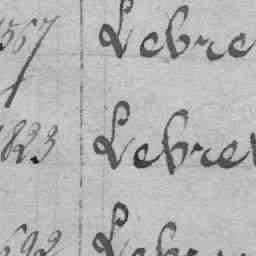 1567 Lebre
1823 Lebre
692 Lebr